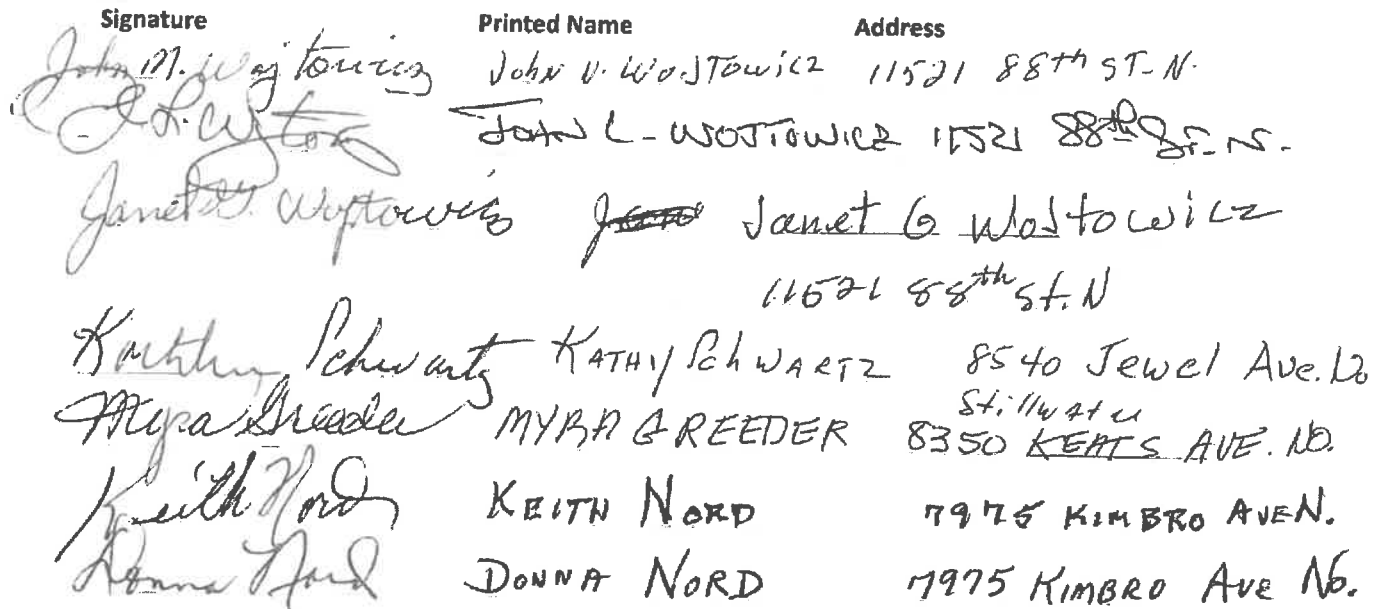 Signature Printed Name Address
John M. Wojtowicz John V. WOJTOWicz 11521 88th ST. N.
JOHN L - WOJTOWICZ 11521 88th St. N.
Janet G. Wojtowicz Janet G WoJtowicz
11521 88th St. N
Schwartz KATHY SchWARTZ 8540 Jewel Ave. No
Stillwater
Myra Greeder MYRA GREEDER 8350 KEATS AVE. NO.
Keith Nord KEITH NORD 7975 KIMBRO AVE N.
Donna Nord DONNA NORD 7975 KIMBRO AVE NO.